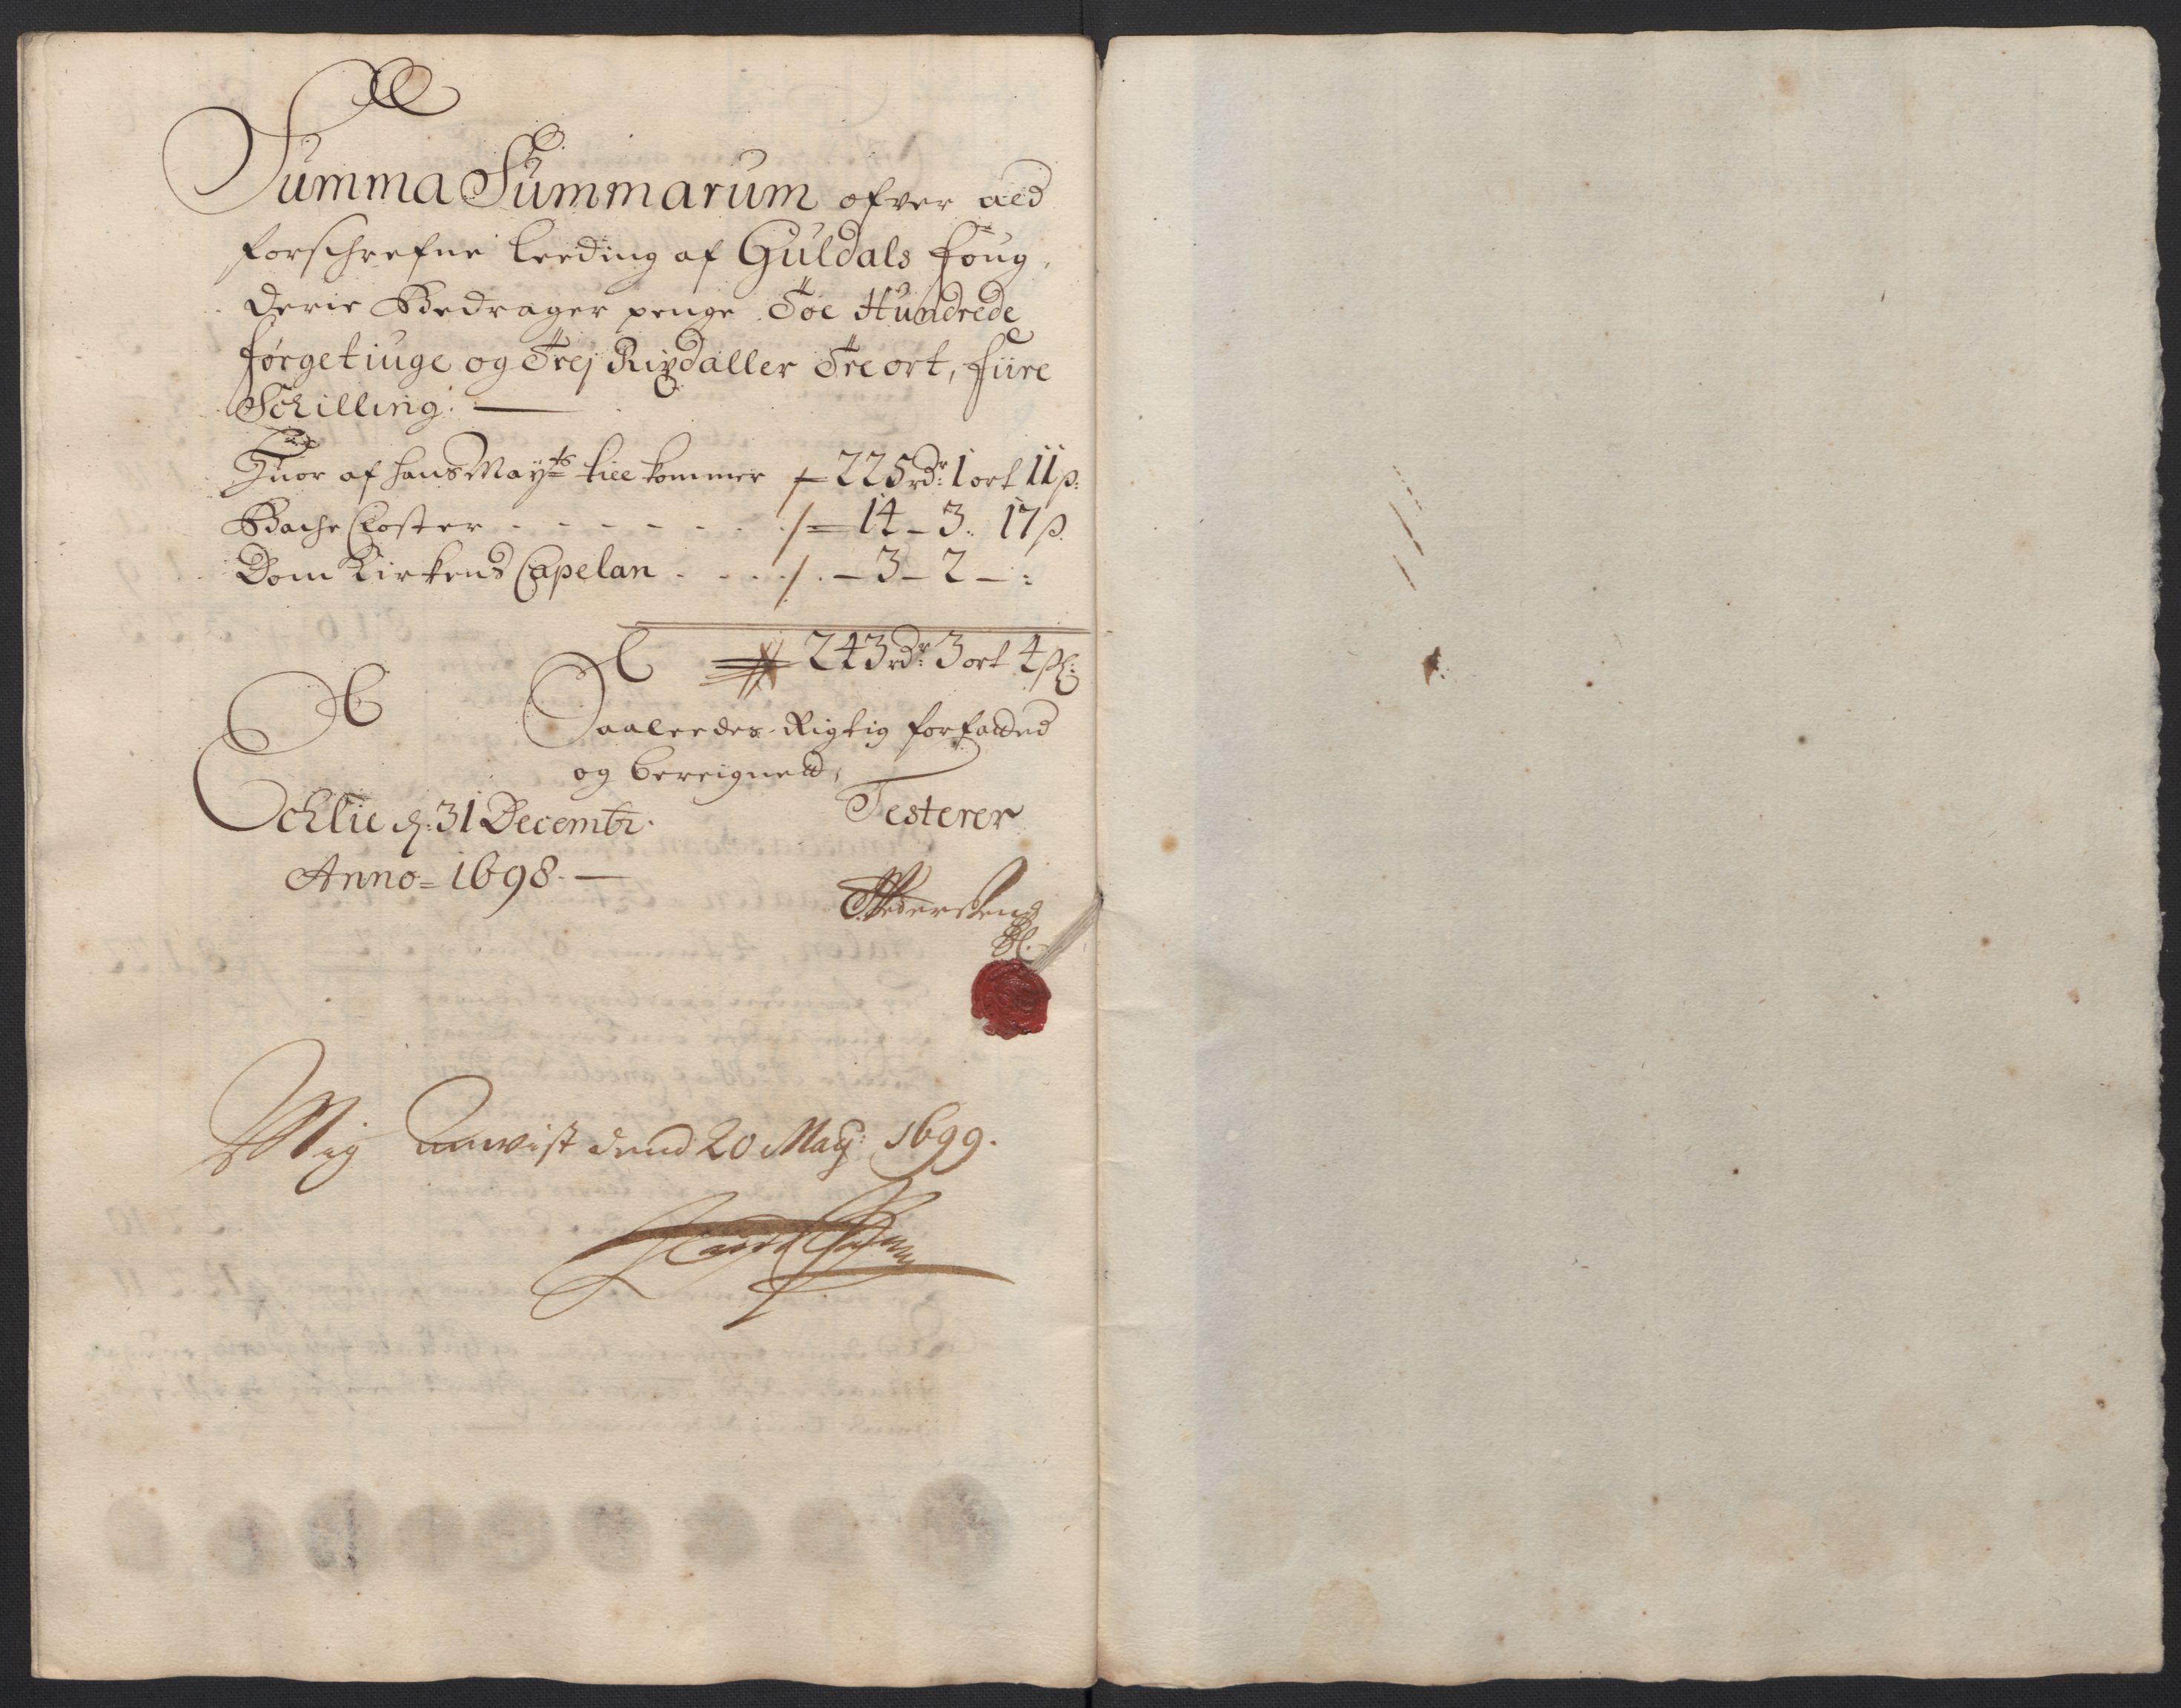 Summa Summarum ofver ald
forschrefne Leeding af Guldals foug,
derie Bedrager penge Toe Hundrede
førgetiuge og Trej Rixdaller Tre ort, fiire
Schilling: —
Huor af hans Mayts till kommer 225 rdr: 1 ort 11 ß:
Bache Closter - - - - - - - ./ = 14 – 3 .. 17 ß.
Dom Kirkens Capelan . . . . ./. – 3 – 2 – :
243 rdr: 3 ort 4 ß:
Saaleedes Rigtig forfatted
og bereigned,
d: 31 Decembr.
Testerer
Anno = 1698. —
Pedersen
Mig Anwist dend 20 Maij: 1699.